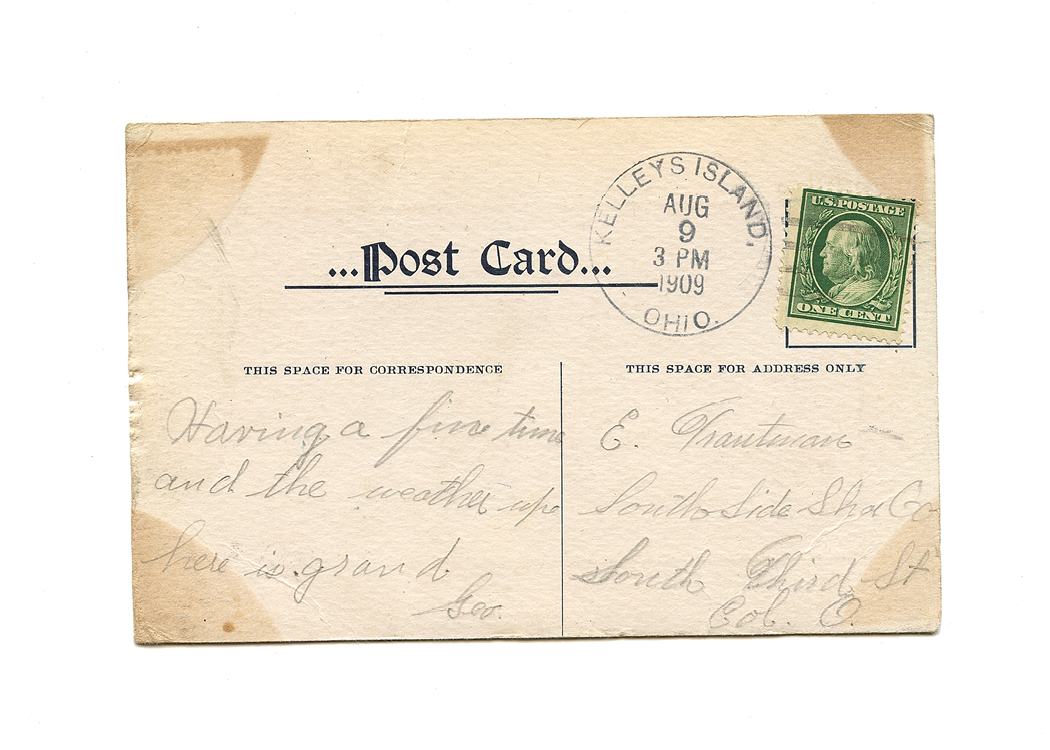 KELLEYS ISLAND,
AUG
9
3 PM
1909
OHIO.
U.S. POSTAGE
ONE CENT
...Post Card...
THIS SPACE FOR CORRESPONDENCE
THIS SPACE FOR ADDRESS ONLY
Having a fine time
and the weather up
here is grand
Geo.
E. Trautman
South Side Sho Co
South Third St
Col. O.